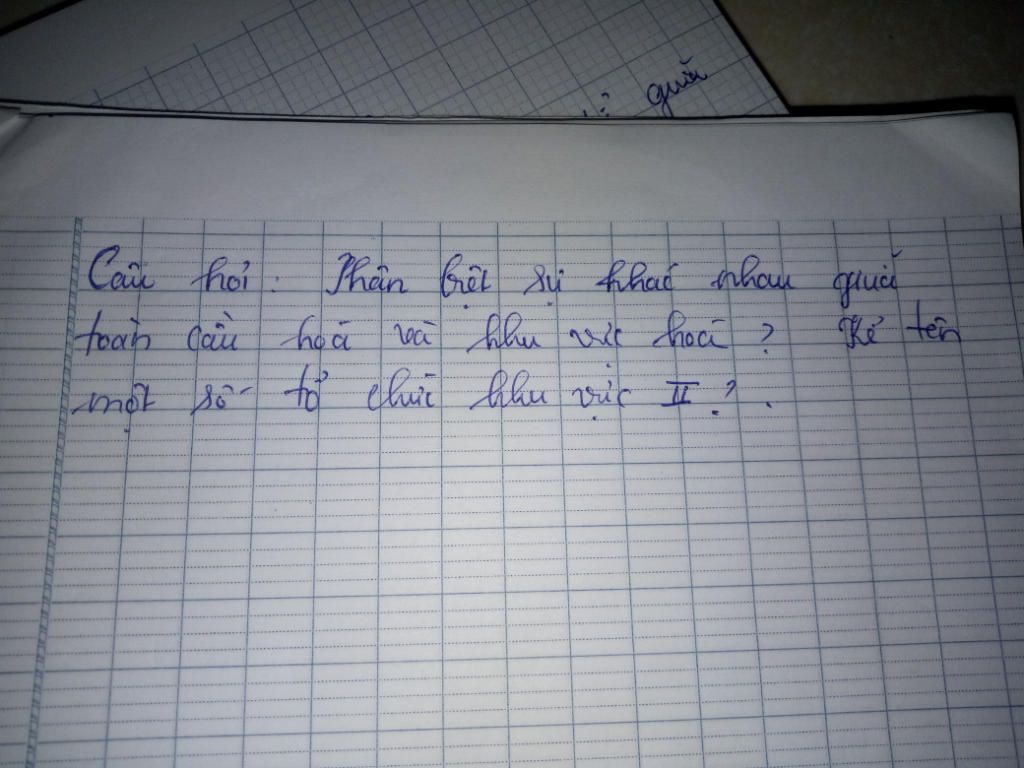 giữa
Câu hỏi : Phân biệt sự khác nhau giữa
toàn cầu hoá và khu vực hoá ? Kể tên
một số tổ chức khu vực II ?.